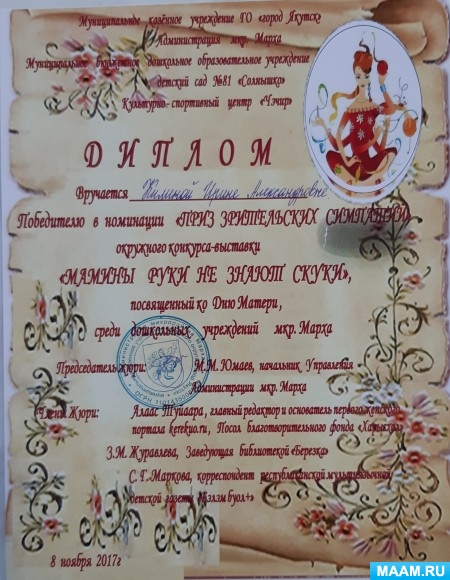 Муниципальное казённое учреждение ГО «город Якутск»
Администрация мкр. Марха
Муниципальное бюджетное дошкольное образовательное учреждение
детский сад №81 «Солнышко»
Культурно-спортивный центр «Чэчир»
ДИПЛОМ
Вручается Ирине Александровне
Победителю в номинации «ПРИЗ ЗРИТЕЛЬСКИХ СИМПАТИЙ»
окружного конкурса-выставки
«МАМИНЫ РУКИ НЕ ЗНАЮТ СКУКИ»,
посвященный ко Дню Матери,
среди дошкольных учреждений мкр. Марха
Председатель жюри: М.М. Юмаев, начальник Управления -
Администрации мкр. Марха
Члены Жюри: Алаас Туйаара, главный редактор и основатель первого женского
портала kerekuo.ru, Посол благотворительного фонда «Харысхал»
З.М. Журавлева, Заведующая библиотекой «Березка»
С.Г. Маркова, корреспондент республиканской мультиязычной
детской газеты «Бэлэм буол+»
8 ноября 2017г
MAAM.RU